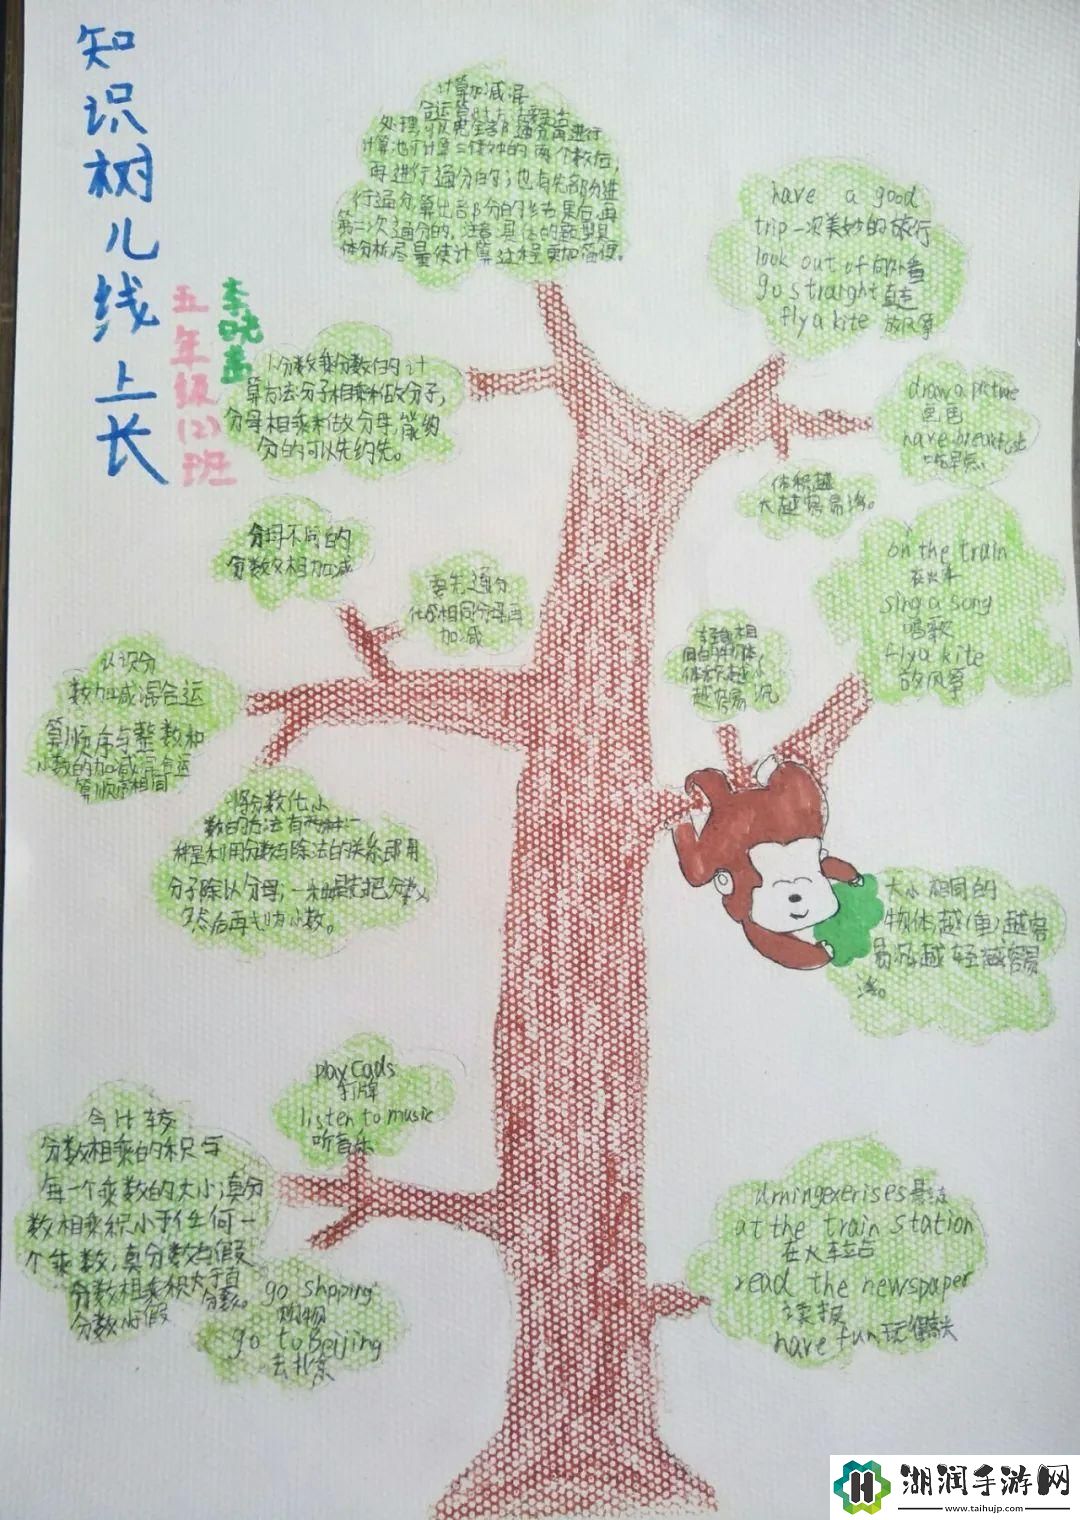 知识树儿线上长
五年级(2)班
李
计算加减混
合运算时
处理可以先全部通分再进行
计算也可计算二体钟的两个数后,
再进行通分的;也有先部分进
行通分,算出部分的结果后再
第二次通分的。注意具体的题型具
体分析尽量使计算过程更加简便。
have a good
trip一次美妙的旅行
look out of向外看
go straight直走
fly a kite 放风筝
1、分数乘分数的计
算方法分子相乘积做分子,
分母相乘积做分母,能约
分的可以先约先。
draw a picture
画画
have breakfast
吃早点
体积越
大越容易浮。
分母不同的
分数相加减
要先通分
化成相同分母再
加减
on the train
在火车
sing a song
唱歌
fly a kite
放风筝
轻重相
同的物体,
体积越小
越容易沉
认识分
数加减混合运
算顺序与整数和
小数的加减混合运
算顺序相同
将分数化小
数的方法有两种一
种是利用分数与除法的关系即用
分子除以分母;一种是先把分数
然后再划为小数。
大小相同的
物体越(重)越容
易沉越轻越容易
浮。
play cads
打牌
listen to music
听音乐
今比较
分数相乘的积与
每一个乘数的大小;真分
数相乘积小于任何一
个乘数;真分数与假
分数相乘积大于真
分数。
分数小假
go shpping
购物
go to Beijing
去北京
at the train station
在火车站
read the newspaper
读报
have fun玩得高兴
湖润手游网
www.taihujp.com